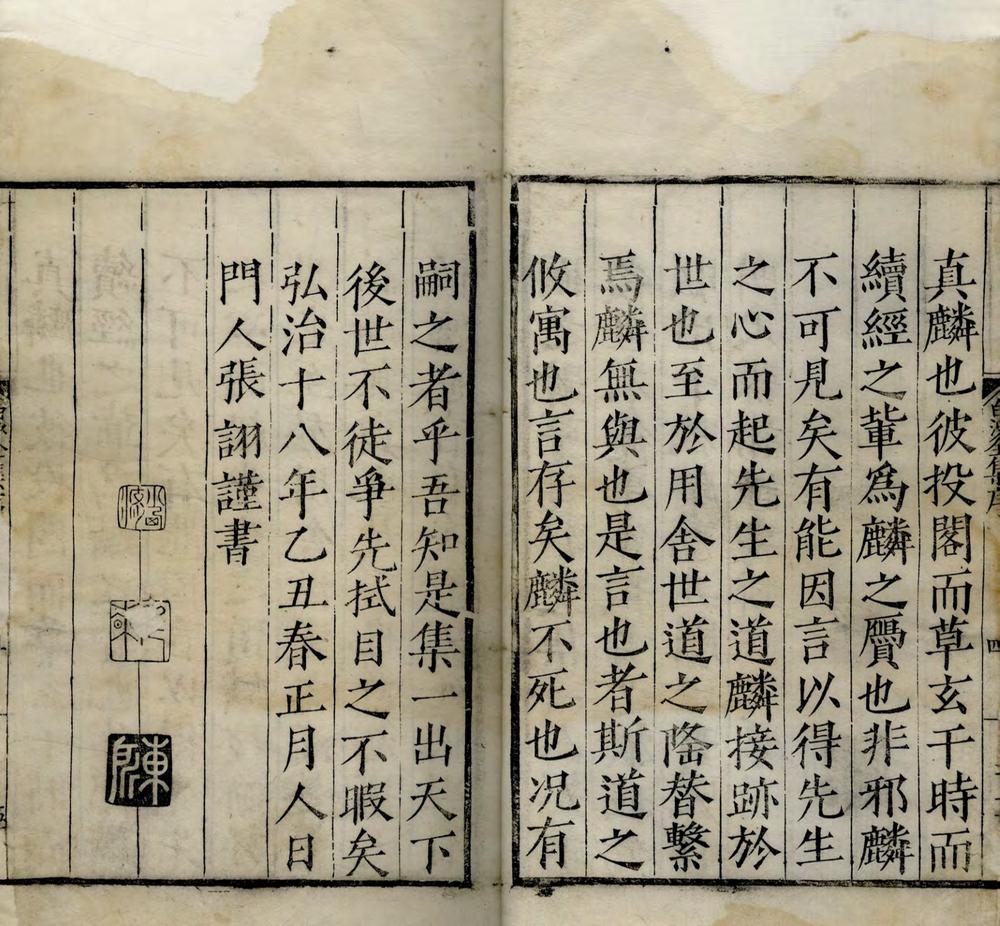 真麟也彼投閣而草玄干時而
續經之軰爲麟之贗也非邪麟
不可見矣有能因言以得先生
之心而起先生之道麟接跡於
世也至於用舍世道之隆替繫
焉麟無與也是言也者斯道之
攸寓也言存矣麟不死也况有
嗣之者乎吾知是集一出天下
後世不徒爭先拭目之不暇矣
弘治十八年乙丑春正月人日
門人張詡謹書